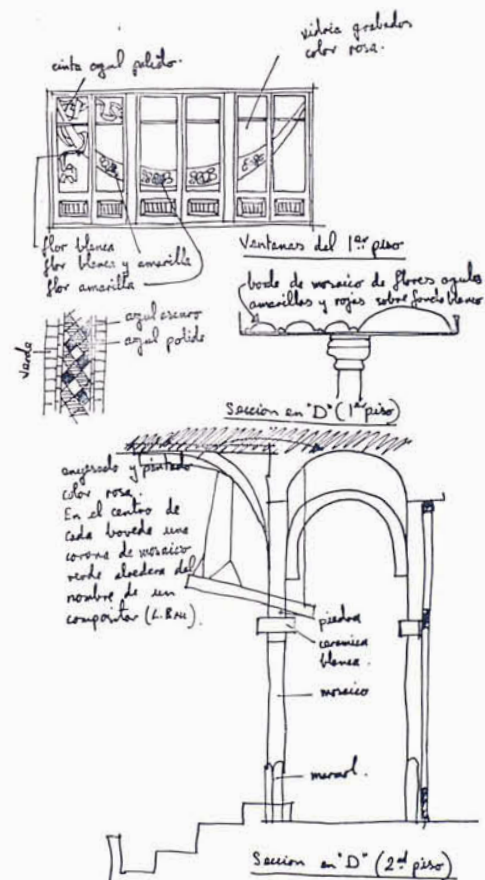 vidrio grabados
color rosa.
cinta azul palido.
flor blanca
flor blanca y amarilla
flor amarilla
Ventanas del 1er piso
borde de mosaico de flores azules
amarillas y rojas sobre fondo blanco
azul oscuro
azul palido
verde
Seccion en "D" (1er piso)
enyesado y pintado
color rosa.
En el centro de
cada boveda una
corona de mosaico
verde alrededor del
nombre de un
compositor (L. Bru).
piedra
ceramica
blanca.
mosaico
marmol.
Seccion en "D" (2nd piso)